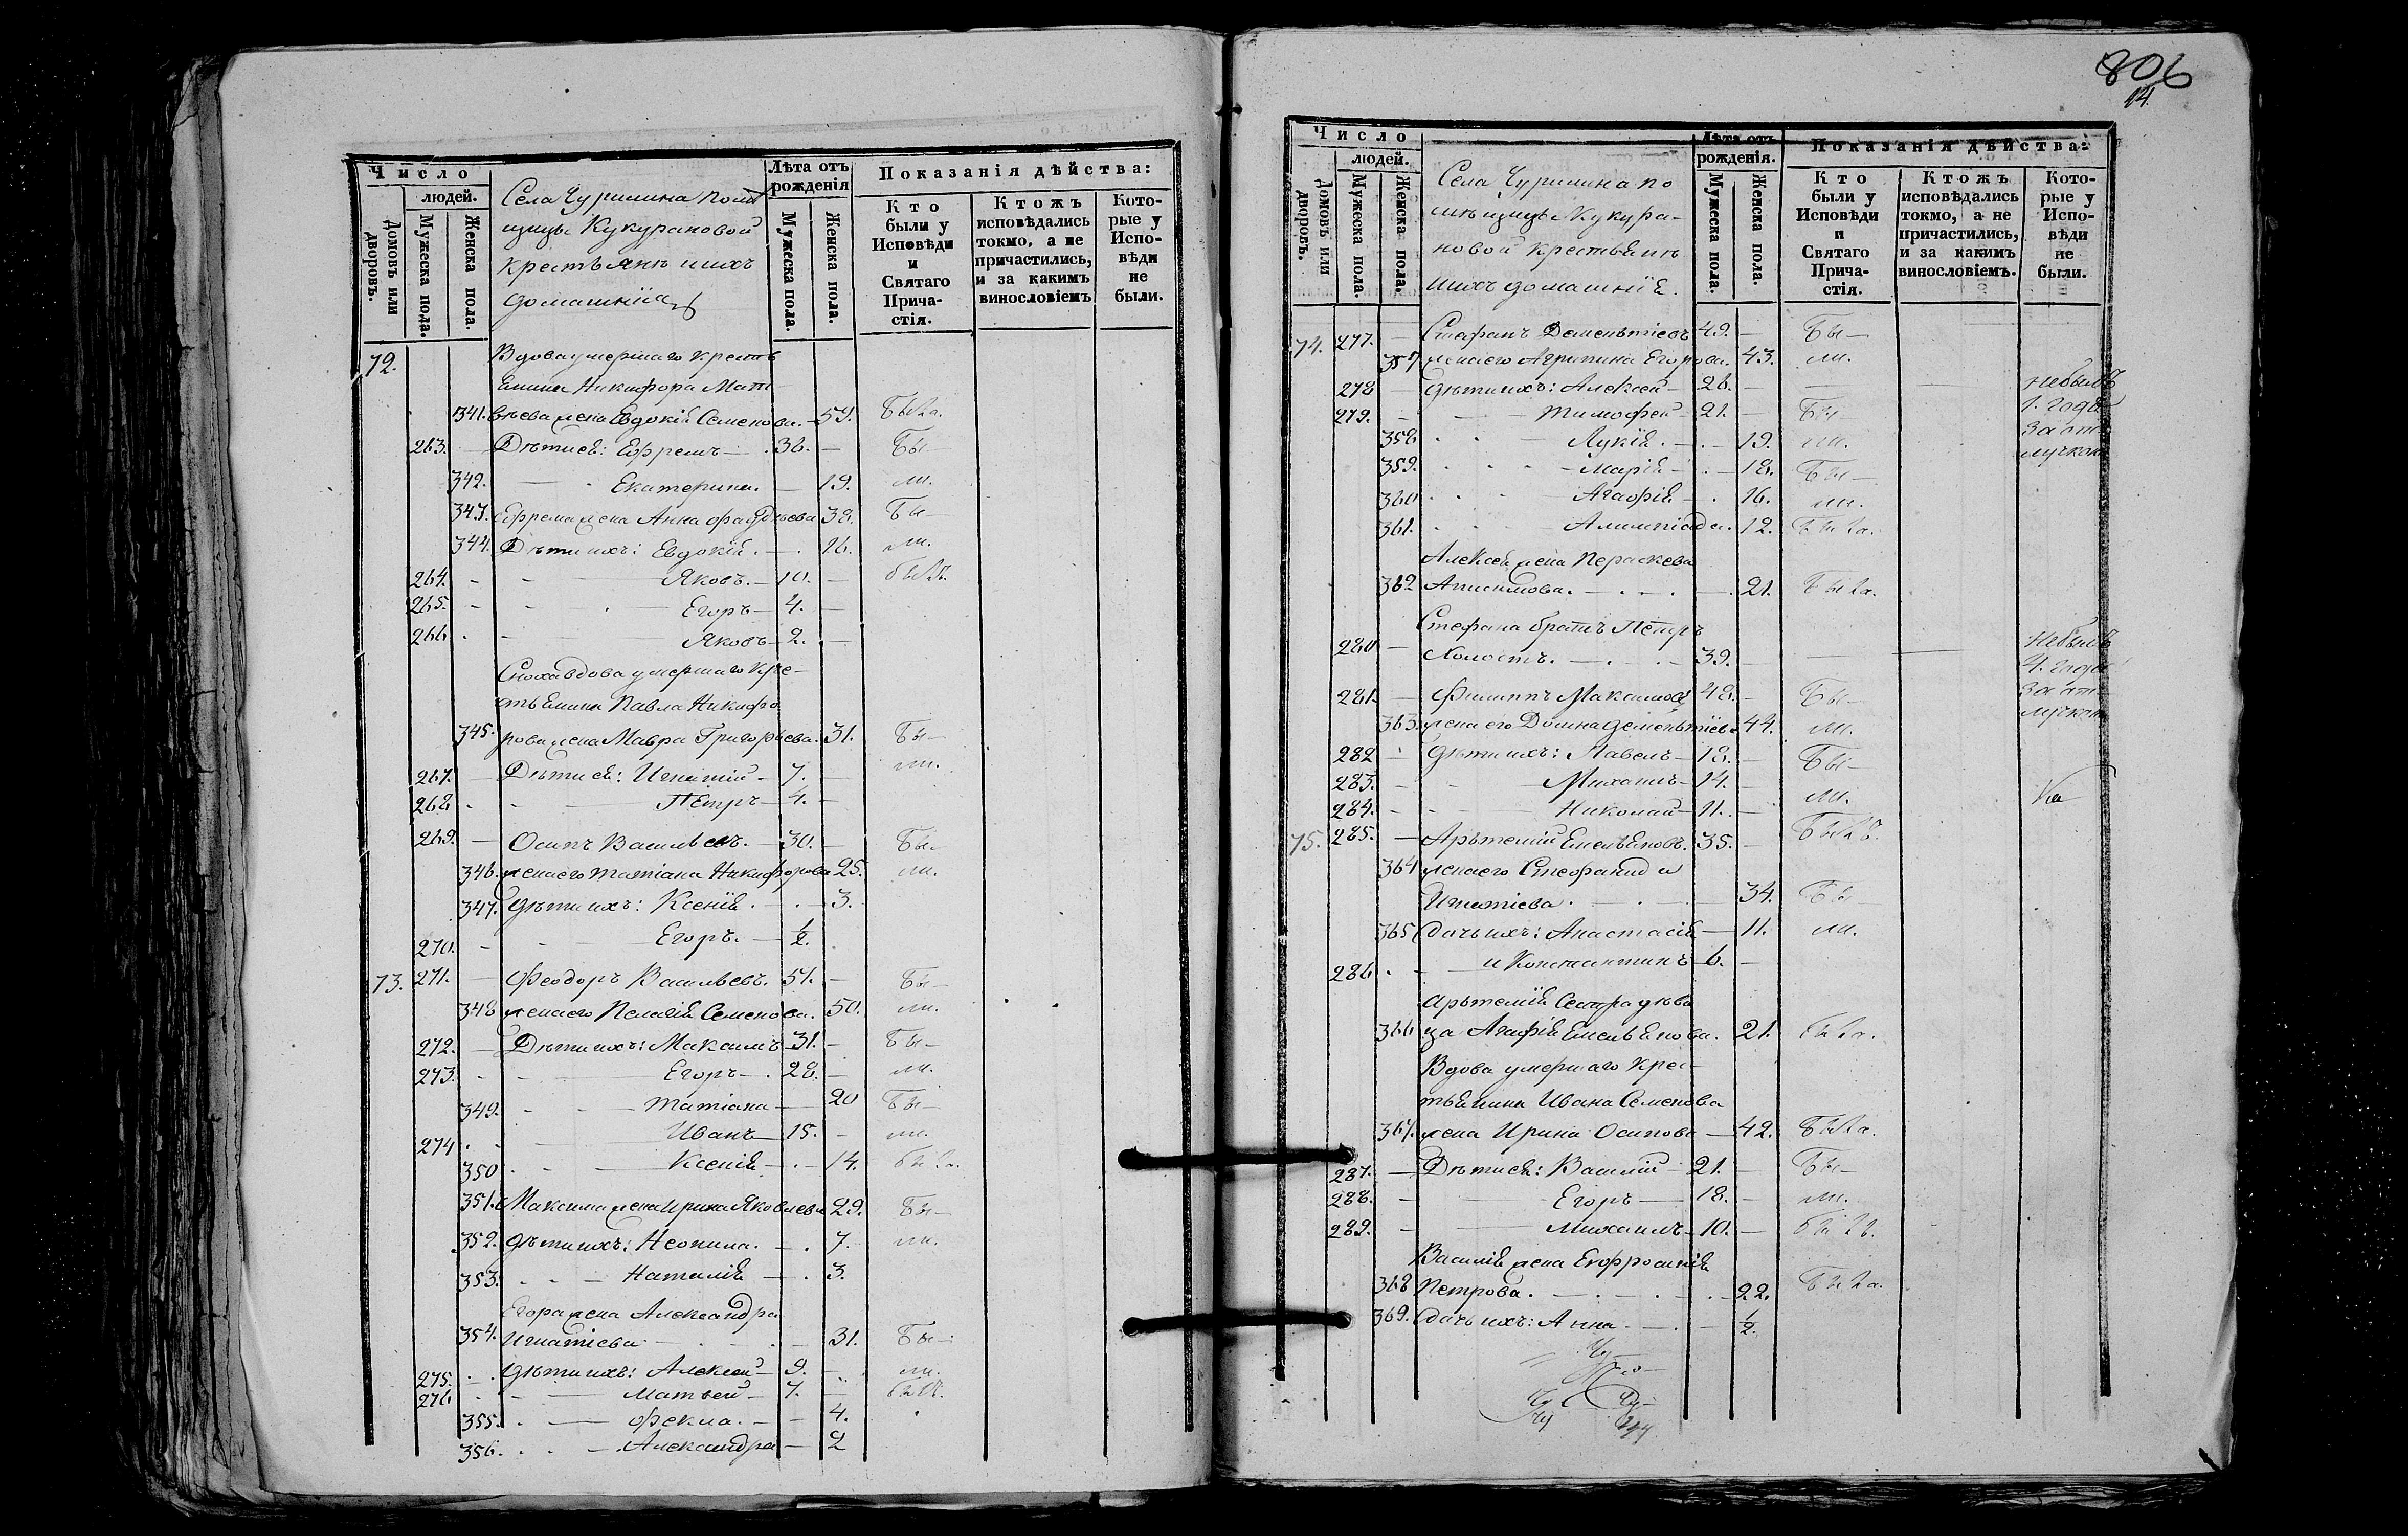 Число
людей.
Домовъ или дворовъ.
Мужеска пола.
Женска пола.
Села Чуришина помѣ
щицы Кукурановой
крестьяне и ихъ
домашнія
Лѣта отъ рожденія
Мужеска пола.
Женска пола.
Показанія дѣйства:
Кто были у Исповѣди и Святаго Прича- стія.
Ктожъ исповѣдались токмо, а не причастились, и за какимъ винословіемъ
Кото- рые у Испо- вѣди не были.
72. Вдова умершаго кресть
янина Никифора Мат
341. вѣева жена Евдокія Семенова. — 59. Была.
263. — Дѣти ея: Ефремъ — 36. — Бы
342. — Екатерина. — 19. ли.
343. Ефрема жена Анна Фаддѣева 38. Бы—
344. Дѣти ихъ: Евдокія. — 16. ли.
264. — Яковъ. — 10. — былъ.
265. — Егоръ — 4. —
266. — Яковъ — 2. —
Сноха вдова умершаго кре—
стьянина Павла Никифо
345. рова жена Мавра Григорьева. 31. Бы—
267. — Дѣти ея: Игнатій — 7. — ли.
268. — Петръ — 4. —
269. — Осипъ Васильевъ. — 30. — Бы—
346. жена его Татіана Никифорова 25. ли.
347. Дѣти ихъ: Ксенія. — 3.
270. — Егоръ. — 1/2.
73. 271. — Феодоръ Васильевъ. 51. — Бы—
348 жена его Пелагія Семенова. 50. ли.
272. — Дѣти ихъ: Максимъ — 31. — Бы—
273. — Егоръ — 28. — ли.
349. — Татіана — 20 Бы—
274. — Иванъ — 15. — ли.
350 — Ксенія — 14. была.
351. Максима жена Ирина Яковлева 29. Бы—
352. Дѣти ихъ: Неонила. — 7. ли.
353. — Наталія — 3.
Егора жена Александра
354. Игнатіева — 31. Бы—
275. Дѣти ихъ: Алексей — 9. — ли.
276 — Матвей — 7. — былъ.
355. — Фекла. — 4.
356. — Александра — 2
806
14
Число
людей.
Домовъ или дворовъ.
Мужеска пола.
Женска пола.
Села Чуришина по
мѣщицы Кукура-
новой крестьяне
и ихъ домашніе.
Лѣта отъ рожденія.
Мужеска пола.
Женска пола.
Показанія дѣйства:
Кто были у Исповѣди и Святаго Прича- стія.
Ктожъ исповѣдались токмо, а не причастились, и за какимъ винословіемъ.
Кото- рые у Испо- вѣди не были.
74. 277. — Стефанъ Дементіевъ 49. — Бы—
357 жена его Агрипина Егорова. 43. ли.
278 — Дѣти ихъ: Алексей — 26. — небылъ
279. — Тимофей — 21. — Бы— 1. годъ
358 — Лукія. — 19. ли. за от
359. — Марія — 18. Бы— лучкою
360 — Агафія — 16. ли.
361. — Алимпіада. 12. Была.
Алексея жена Параскева
362 Анисимова. — 21. Была.
Стефана братъ Петръ
280 — холостъ. — 39. — небылъ
1. годъ
281. — Филиппъ Максимовъ 48. — Бы— за от
363. жена его Домна Дементіева 44. ли. лучкою
282 — Дѣти ихъ: Павелъ — 18. — Бы—
283. — Михаилъ — 14. — ли.
284. — Николай — 11. —
75. 285. — Артемій Емельяновъ. 35. — Былъ.
364 жена его Стефанида
Игнатіева. — 34. Бы
365 Дочь ихъ: Анастасія — 11. ли.
286 — и Константинъ — 6. —
Артемія сестра дѣви
366 ца Агафія Емельянова. 21. была.
Вдова умершаго крес—
тьянина Ивана Семенова
367. жена Ирина Осипова — 42. Была.
287. — Дѣти ея: Василій — 21. — Бы—
288. — Егоръ — 18. — ли.
289. — Михаилъ — 10. — былъ.
Василія жена Евфросинія
368 Петрова. — 22. Была.
369. Дочь ихъ: Анна. — 1/2.